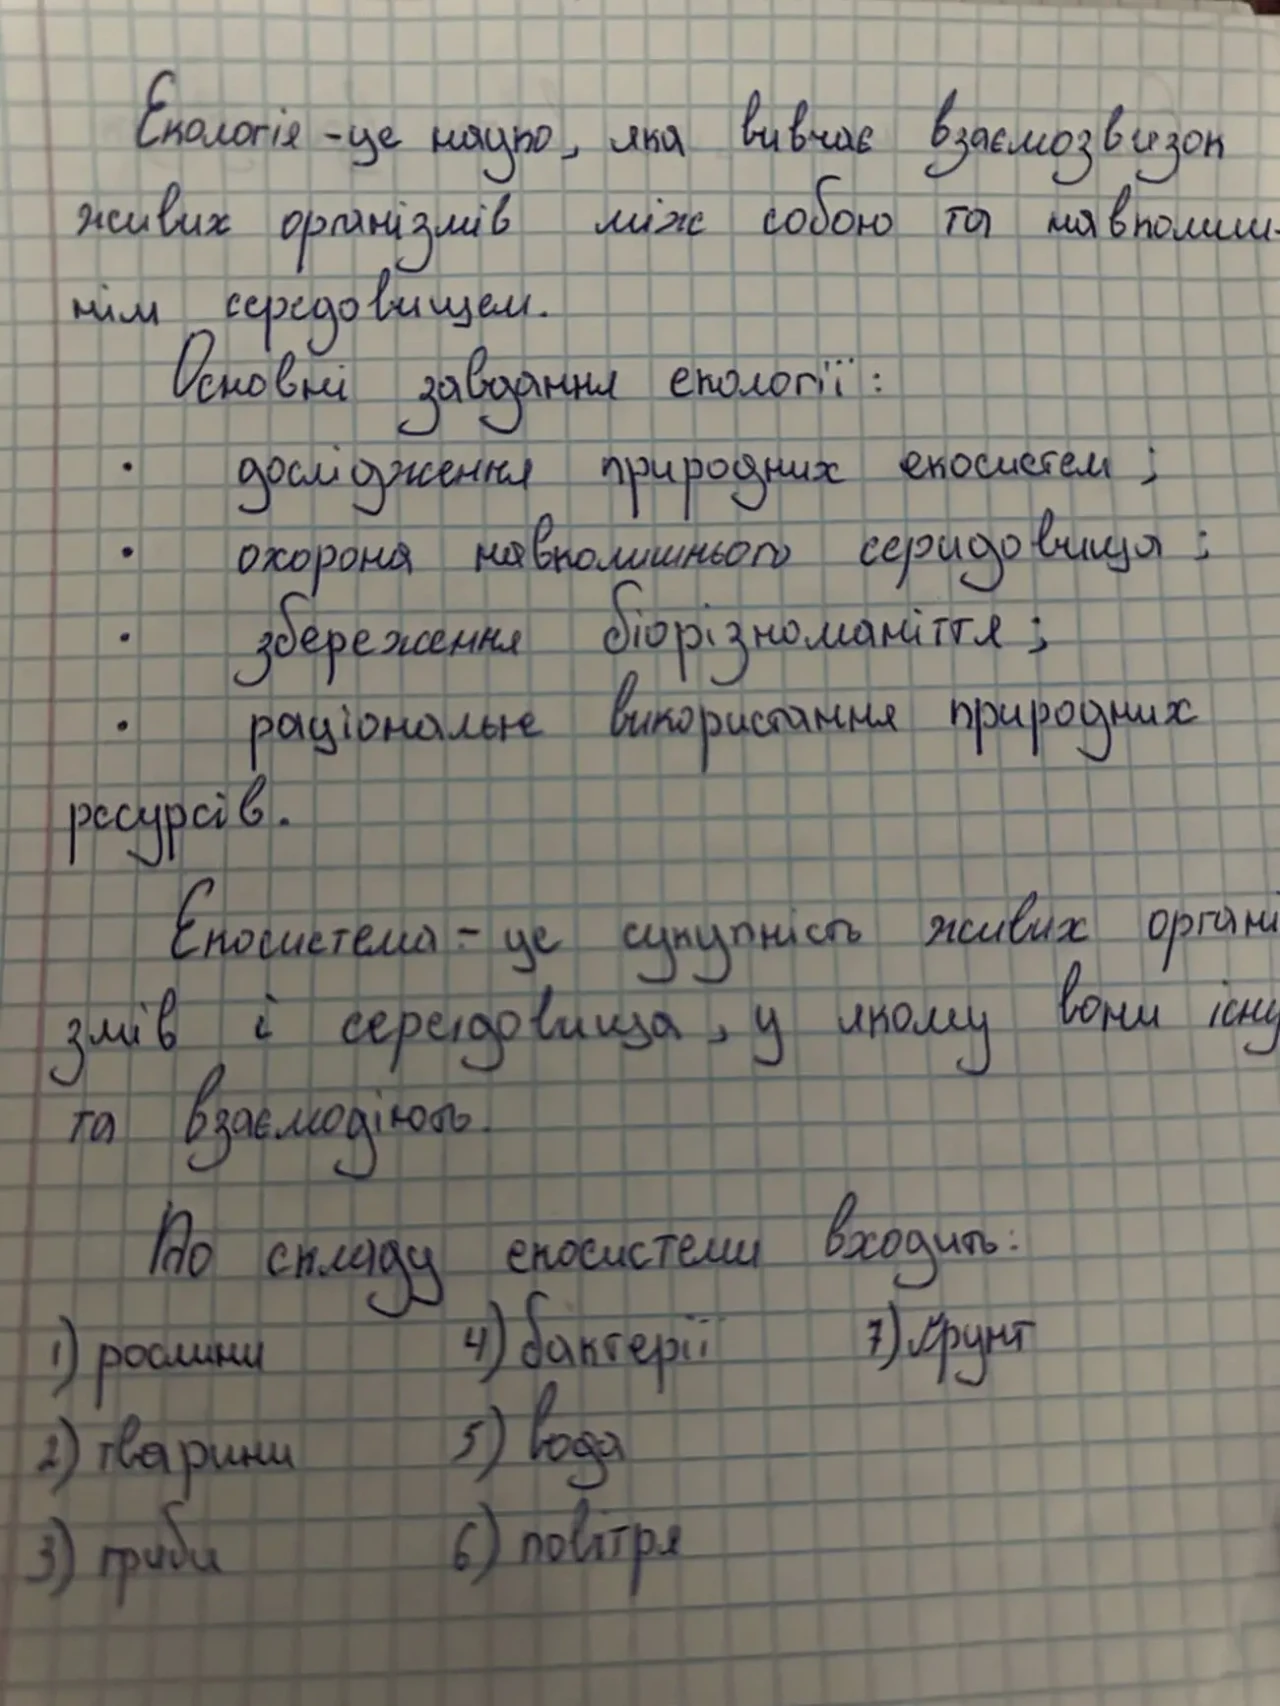 Екологія - це наука, яка вивчає взаємозвизок
живих організмів між собою та навколиш-
нім середовищем.
Основні завдання екології:
· дослідження природних екосистем;
· охорона навколишнього серидовища;
· збереження біорізноманіття;
· раціональне використання природних
ресурсів.
Екосистема - це сукупність живих органі
змів і середовища, у якому вони існу
та взаємодіють.
До складу екосистеми входить:
1) рослини 4) бактерії 7) ґрунт
2) тварини 5) вода
3) гриби 6) повітря